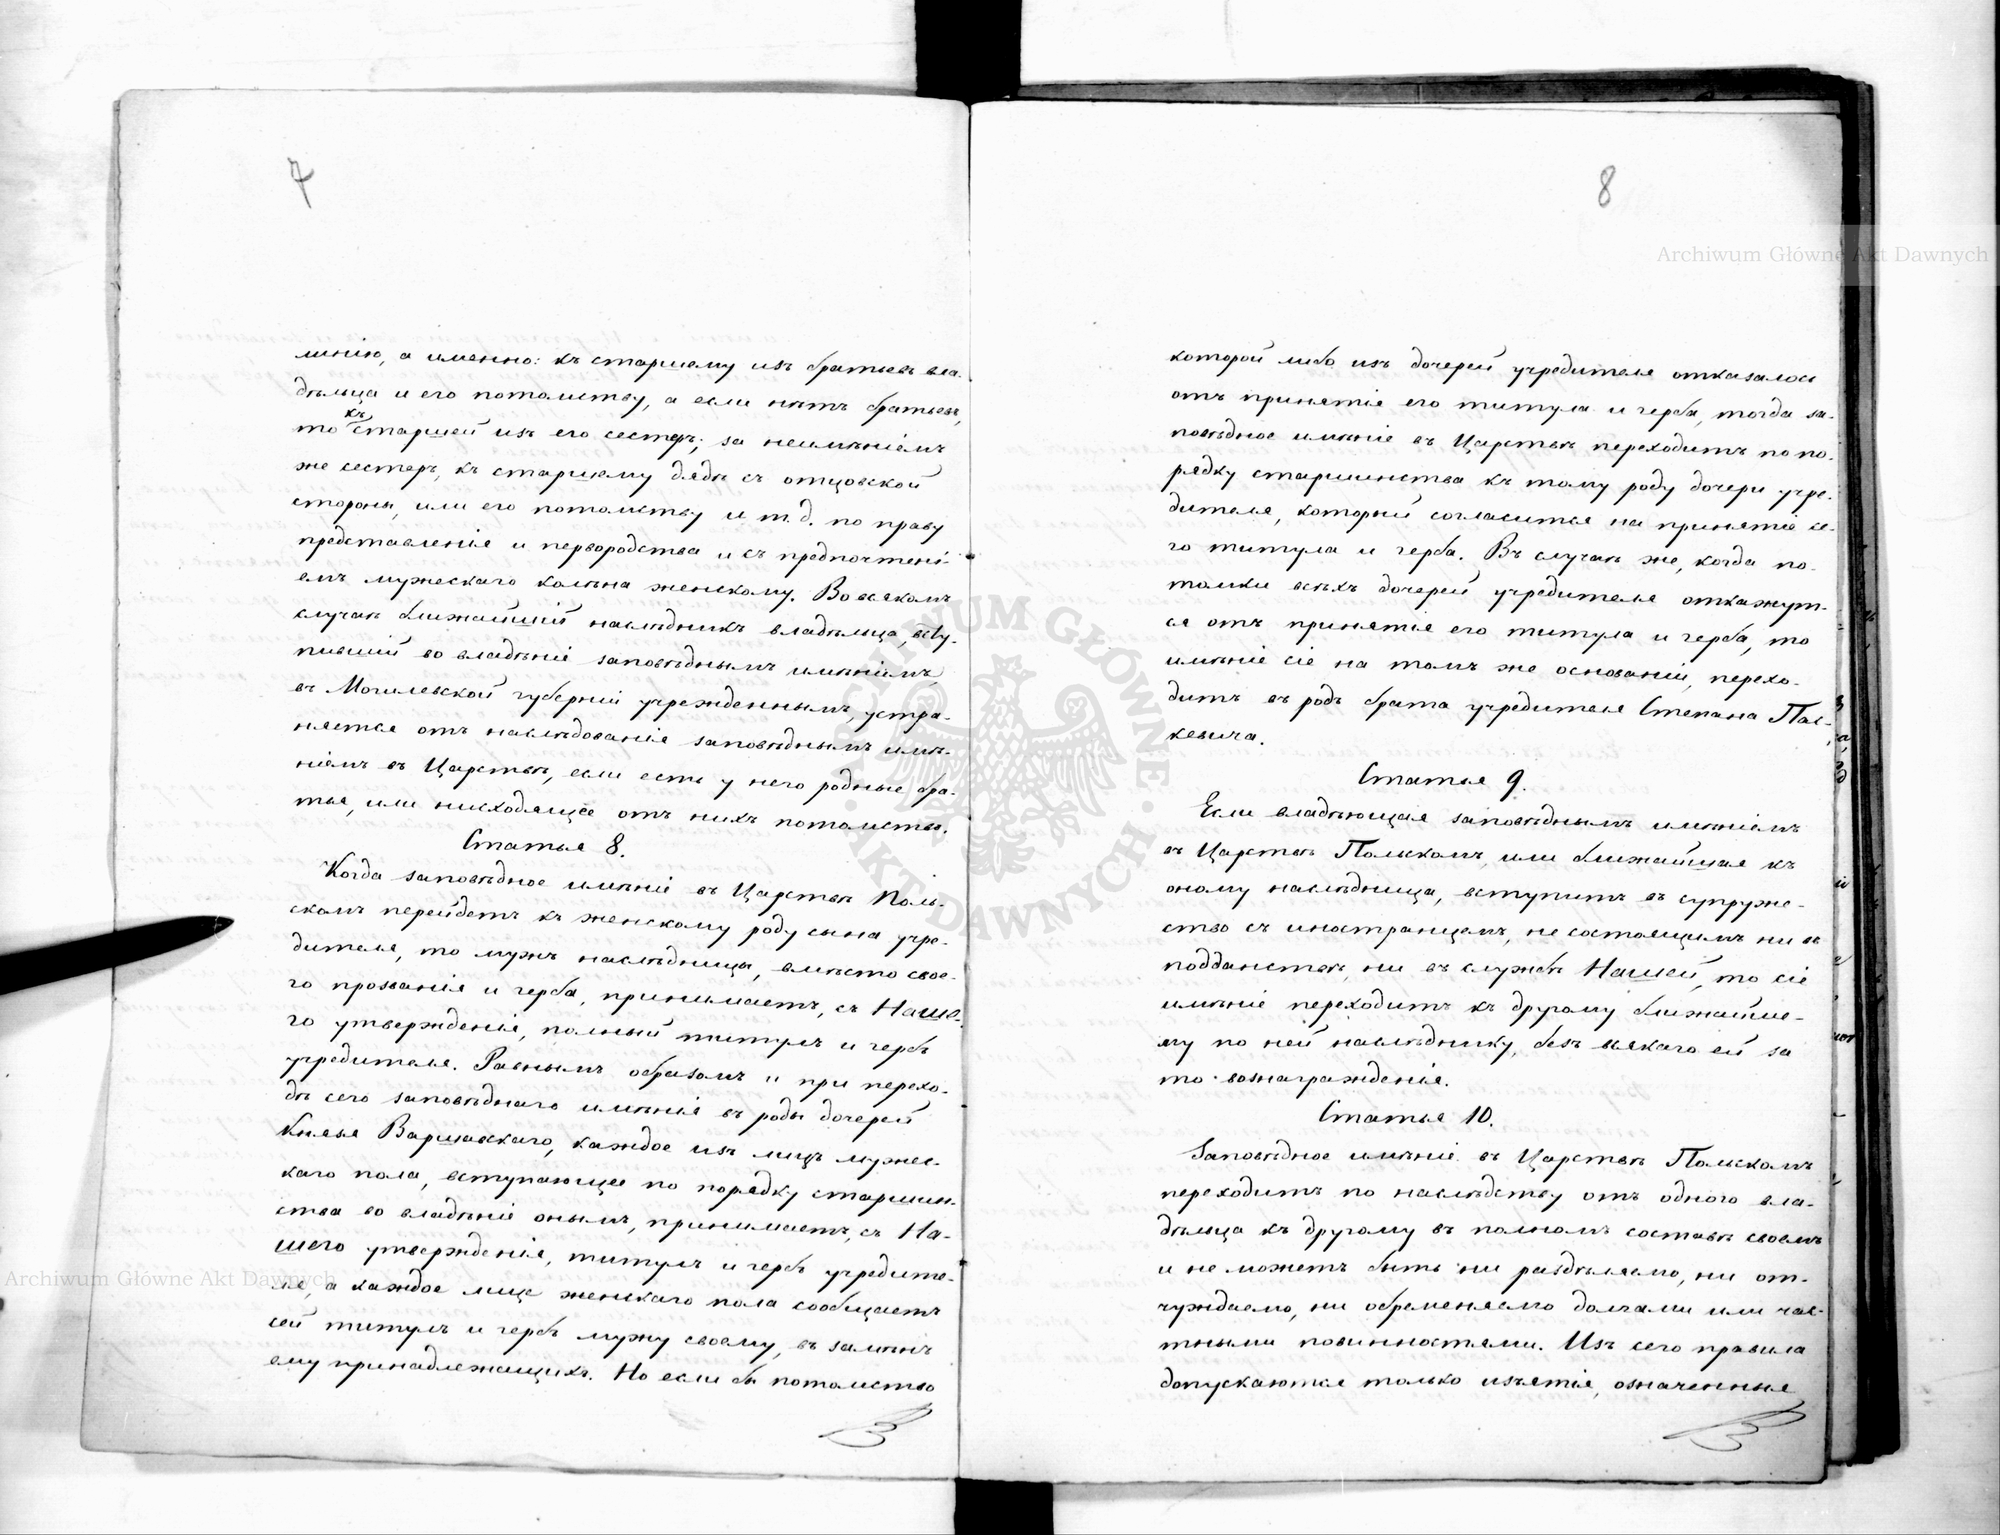 7
линію, а именно: къ старшему изъ братьевъ вла-
дѣльца и его потомству, а если нѣтъ братьевъ,
то къ старшей изъ его сестеръ; за неимѣніемъ
же сестеръ, къ старшему дядѣ съ отцовской
стороны, или его потомству и т. д. по праву
представленія и первородства и съ предпочтені-
емъ мужескаго колѣна женскому. Во всякомъ
случаѣ ближайшій наслѣдникъ владѣльца, всту-
пившій во владѣніе заповѣднымъ имѣніемъ,
въ Могилевской губерніи учрежденнымъ, устра-
няется отъ наслѣдованія заповѣднымъ имѣ-
ніемъ въ Царствѣ, если есть у него родные бра-
тья, или нисходящее отъ нихъ потомство.
Статья 8.
Когда заповѣдное имѣніе въ Царствѣ Поль-
скомъ перейдетъ къ женскому роду сына учре-
дителя, то мужъ наслѣдницы, вмѣсто свое-
го прозванія и герба, принимаетъ, съ Наше-
го утвержденія, полный титулъ и гербъ
учредителя. Равнымъ образомъ и при перехо-
дѣ сего заповѣднаго имѣнія въ роды дочерей
Князя Варшавскаго, каждое изъ лицъ мужес-
каго пола, вступающее по порядку старшин-
ства во владѣніе онымъ, принимаетъ, съ На-
шего утвержденія, титулъ и гербъ учредите-
ля, а каждое лице женскаго пола сообщаетъ
сей титулъ и гербъ мужу своему, въ замѣнъ
ему принадлежащихъ. Но если бы потомство
8
которой либо изъ дочерей учредителя отказалось
отъ принятія его титула и герба, тогда за-
повѣдное имѣніе въ Царствѣ переходитъ по по-
рядку старшинства къ тому роду дочери учре-
дителя, который согласится на принятіе се-
го титула и герба. Въ случаѣ же, когда по-
томки всѣхъ дочерей учредителя откажут-
ся отъ принятія его титула и герба, то
имѣніе сіе на томъ же основаніи, перехо-
дитъ въ родъ брата учредителя Степана Пас-
кевича.
Статья 9.
Если владѣющая заповѣднымъ имѣніемъ
въ Царствѣ Польскомъ, или ближайшая къ
оному наслѣдница, вступитъ въ супруже-
ство съ иностранцемъ, не состоящимъ ни въ
подданствѣ, ни въ службѣ Нашей, то сіе
имѣніе переходитъ къ другому ближайше-
му по ней наслѣднику, безъ всякаго ей за
то вознагражденія.
Статья 10.
Заповѣдное имѣніе въ Царствѣ Польскомъ
переходитъ по наслѣдству отъ одного вла-
дѣльца къ другому въ полномъ составѣ своемъ
и не можетъ быть ни раздѣляемо, ни от-
чуждаемо, ни обременяемо долгами или час-
тными повинностями. Изъ сего правила
допускаются только изъятія, означенныя
Archiwum Główne Akt Dawnych
Archiwum Główne Akt Dawnych
ARCHIWUM GŁÓWNE · AKT DAWNYCH ·